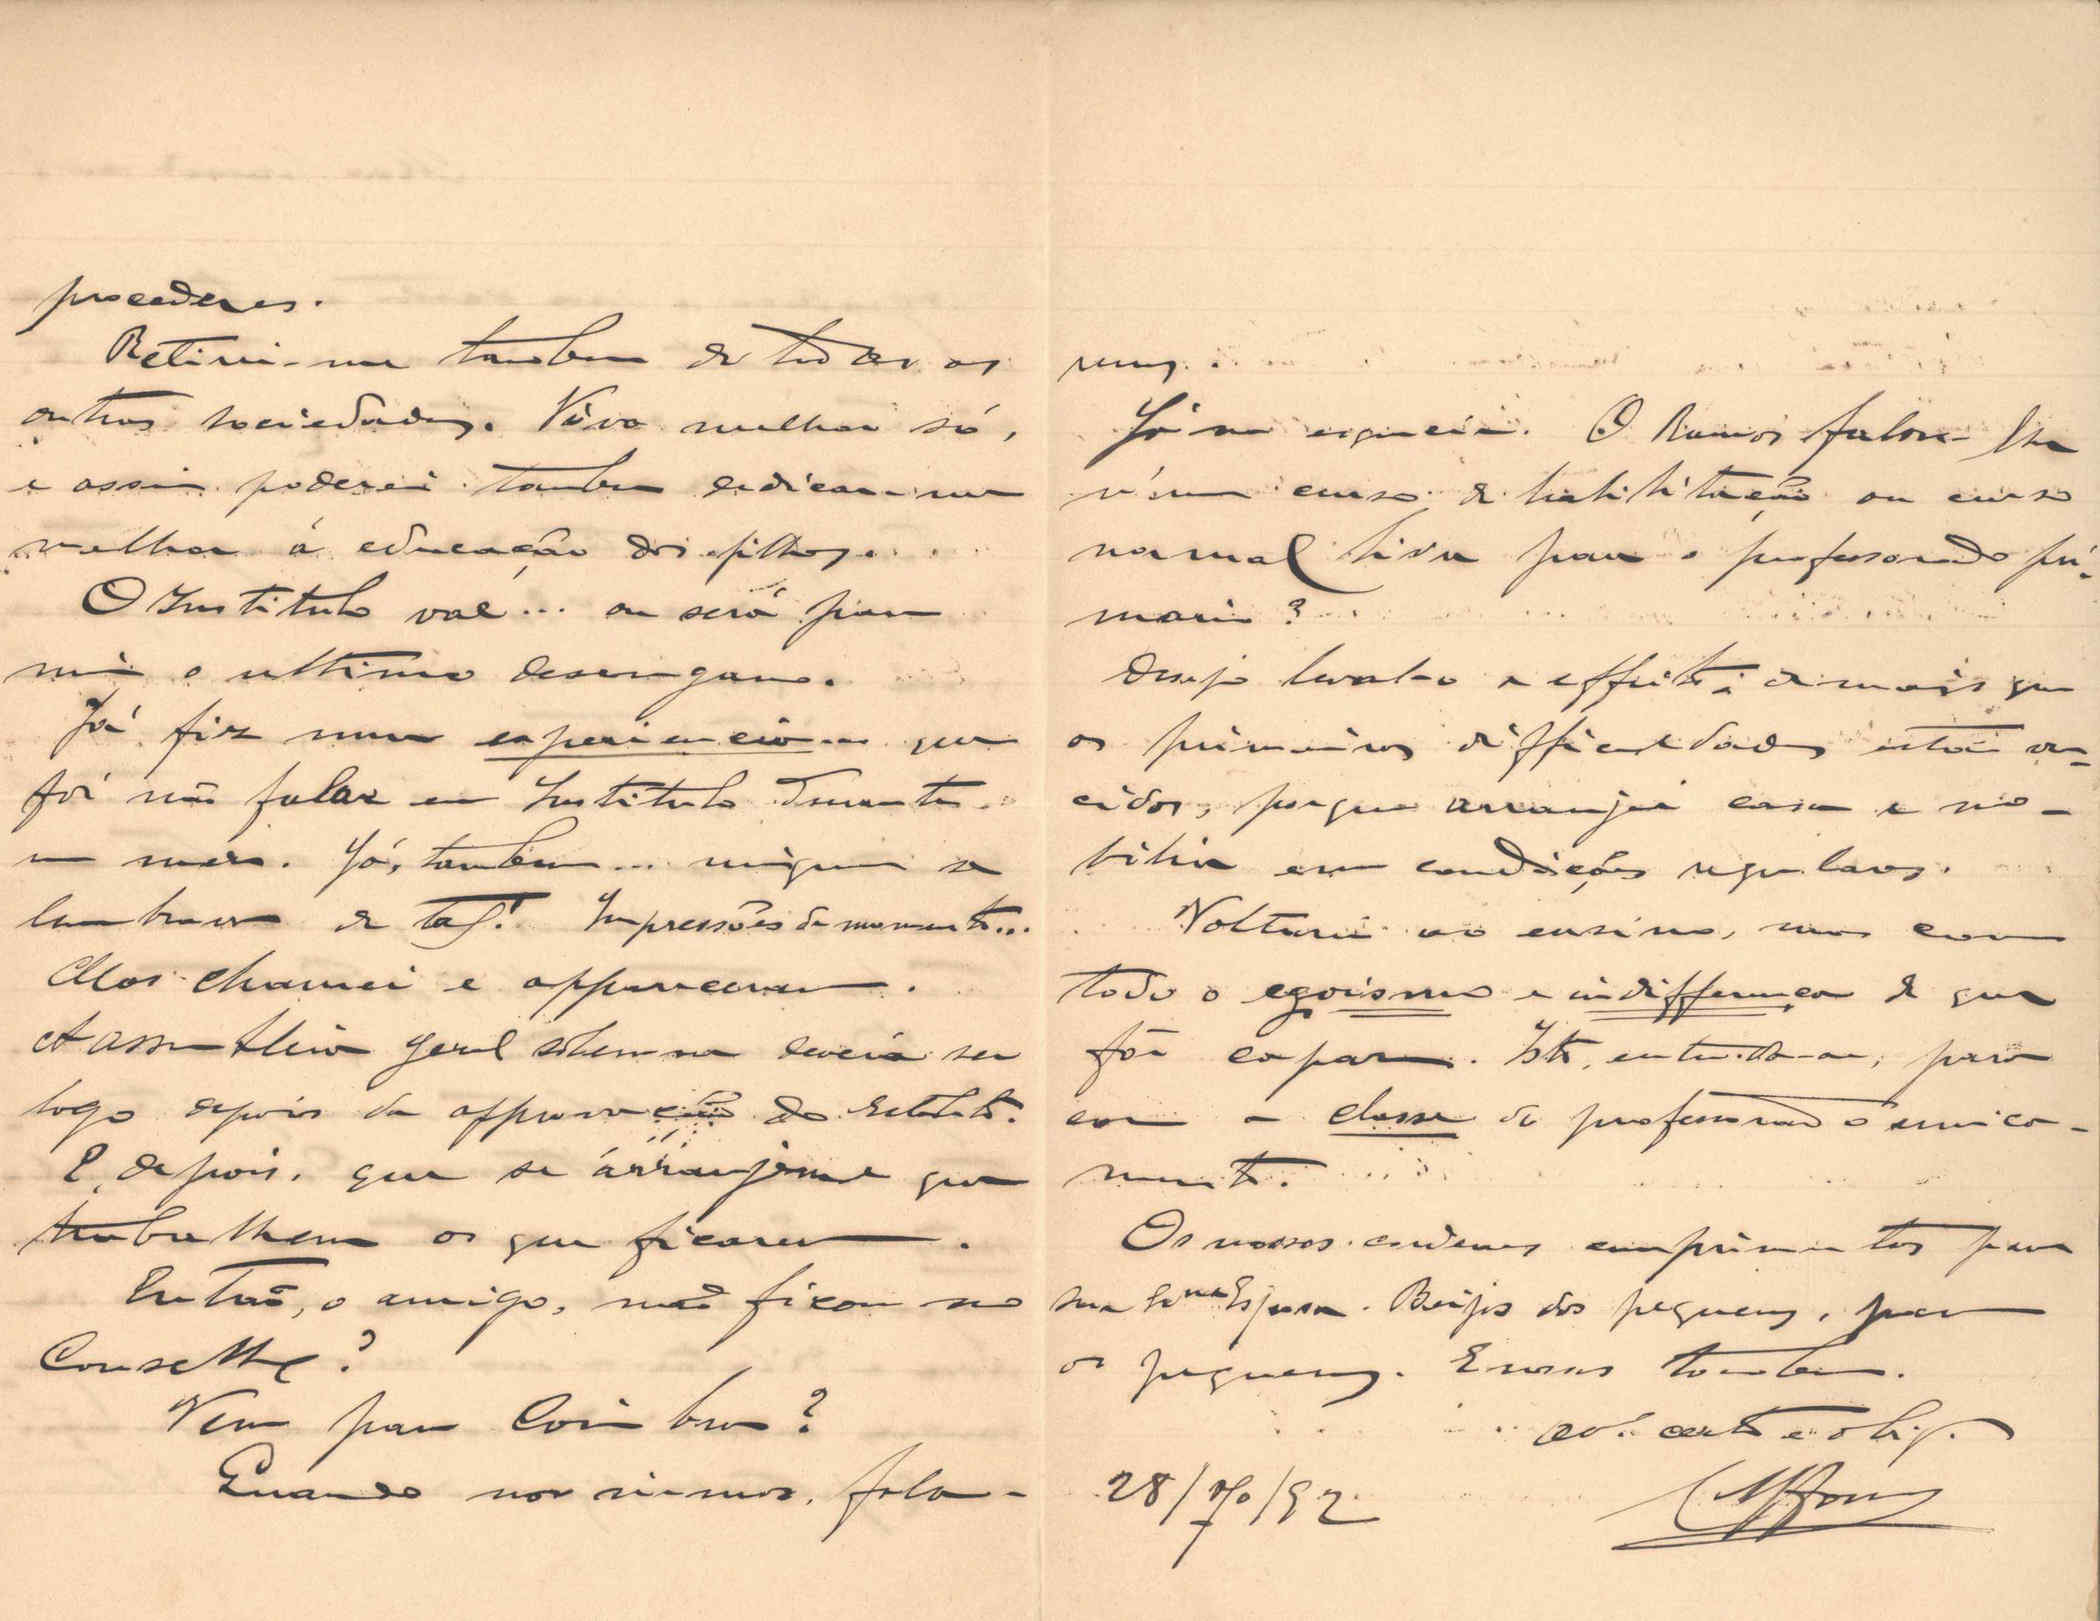 procederes.
Retirei-me tambem de todas as
outras sociedades. Vivo melhor só,
e assim poderei tambem dedicar-me
melhor á educação dos filhos.
O Instituto vae... ou será para
mim o ultimo desengano.
Já fiz uma experiencia que
foi não falar em Instituto durante
um mez. Já, tambem... ninguem se
lembrava de tal! Impressões de momento...
Mas chamei e appareceram.
A assembleia geral solemne deveria ser
logo depois da approvação do Estatuto.
E, depois, que se arranjem e que
trabalhem os que ficarem.
Então, o amigo, não ficou no
Conselho?
Vem para Coimbra?
Quando nos virmos, fala-
remos.
Já me esquecia. O Ramos falou-lhe
n'um curso de habilitação ou curso
normal livre para o professorado pri-
mario?
Desejo leval-o a effeito, demais que
as primeiras difficuldades estão ven-
cidas, porque arranjei casa e mo-
bilia em condições regulares.
Voltarei ao ensino, mas com
todo o egoismo e indifferença de que
fôr capaz. Isto, entenda-se, para
com a classe do professorado unica-
mente.
Os nossos cordeaes cumprimentos para
sua Ex.ma Esposa. Beijos dos pequenos, para
os pequenos. E nossos tambem.
am.º certo e obrig.
28/10/92